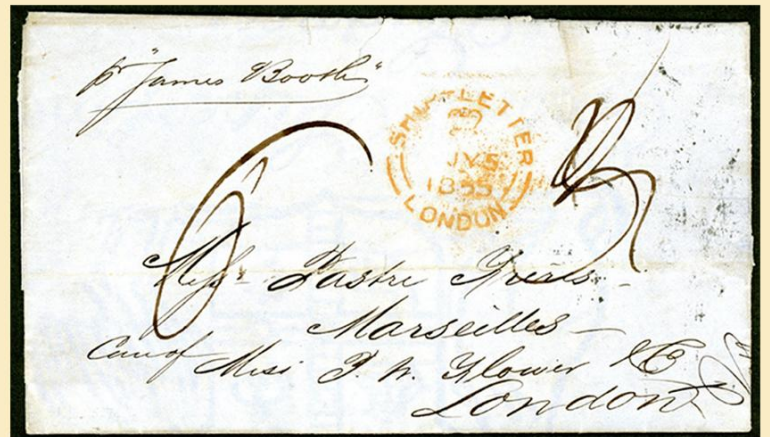 pr "James Booth"
SHIP-LETTER
JY 5
1855
LONDON
6
Messrs Pastre Frères
Marseilles
Care of Messrs P. W. Flower & Co
London